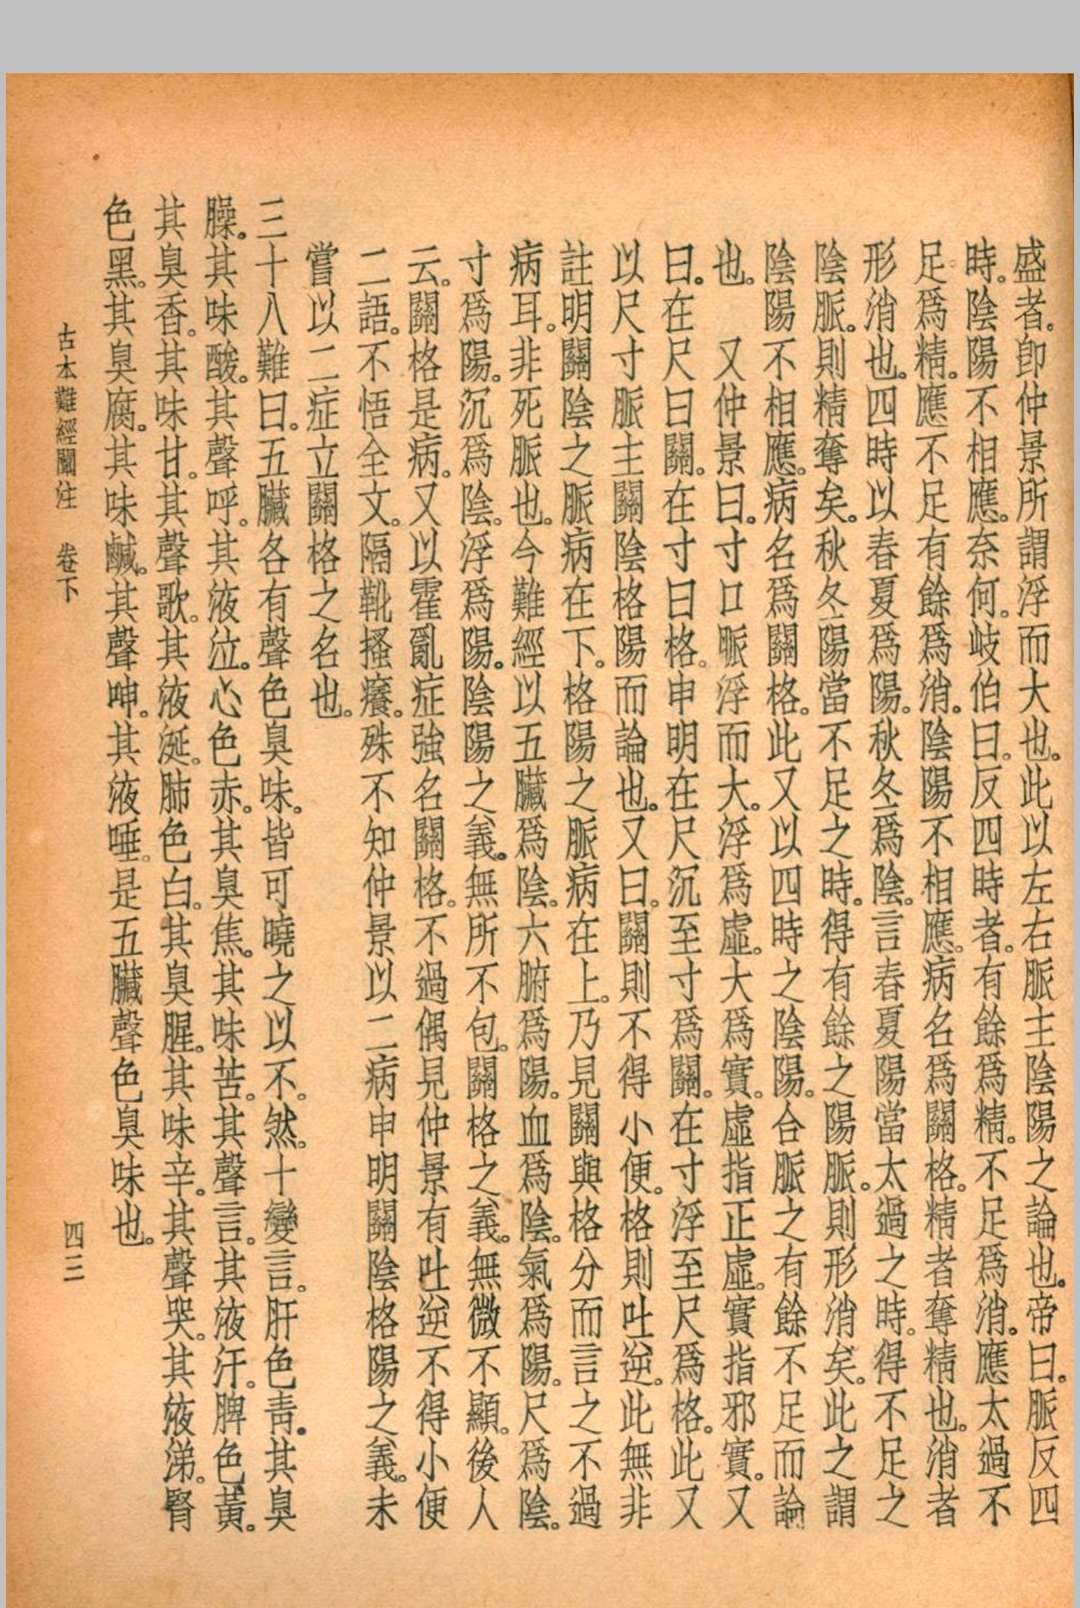 盛者。卽仲景所謂浮而大也。此以左右脈主陰陽之論也。帝曰。脈反四
時。陰陽不相應。奈何。岐伯曰。反四時者。有餘爲精。不足爲消。應太過不
足爲精。應不足有餘爲消。陰陽不相應。病名爲關格。精者奪精也。消者
形消也。四時以春夏爲陽。秋冬爲陰。言春夏陽當太過之時。得不足之
陰脈。則精奪矣。秋冬陽當不足之時。得有餘之陽脈。則形消矣。此之謂
陰陽不相應。病名爲關格。此又以四時之陰陽。合脈之有餘不足而論
也。　又仲景曰。寸口脈浮而大。浮爲虛。大爲實。虛指正虛。實指邪實。又
曰。在尺曰關。在寸曰格。申明在尺沉至寸爲關。在寸浮至尺爲格。此又
以尺寸脈主關陰格陽而論也。又曰。關則不得小便。格則吐逆。此無非
註明關陰之脈病在下。格陽之脈病在上。乃見關與格分而言之不過
病耳。非死脈也。今難經以五臟爲陰。六腑爲陽。血爲陰。氣爲陽。尺爲陰。
寸爲陽。沉爲陰。浮爲陽。陰陽之義。無所不包。關格之義。無微不顯。後人
云。關格是病。又以霍亂症強名關格。不過偶見仲景有吐逆不得小便
二語。不悟全文。隔靴搔癢。殊不知仲景以二病申明關陰格陽之義。未
嘗以二症立關格之名也。
三十八難曰。五臟各有聲色臭味。皆可曉之以不。然。十變言。肝色靑。其臭
臊。其味酸。其聲呼。其液泣。心色赤。其臭焦。其味苦。其聲言。其液汗。脾色黃。
其臭香。其味甘。其聲歌。其液涎。肺色白。其臭腥。其味辛。其聲哭。其液涕。腎
色黑。其臭腐。其味鹹。其聲呻。其液唾。是五臟聲色臭味也。
古本難經闡注　卷下
四三